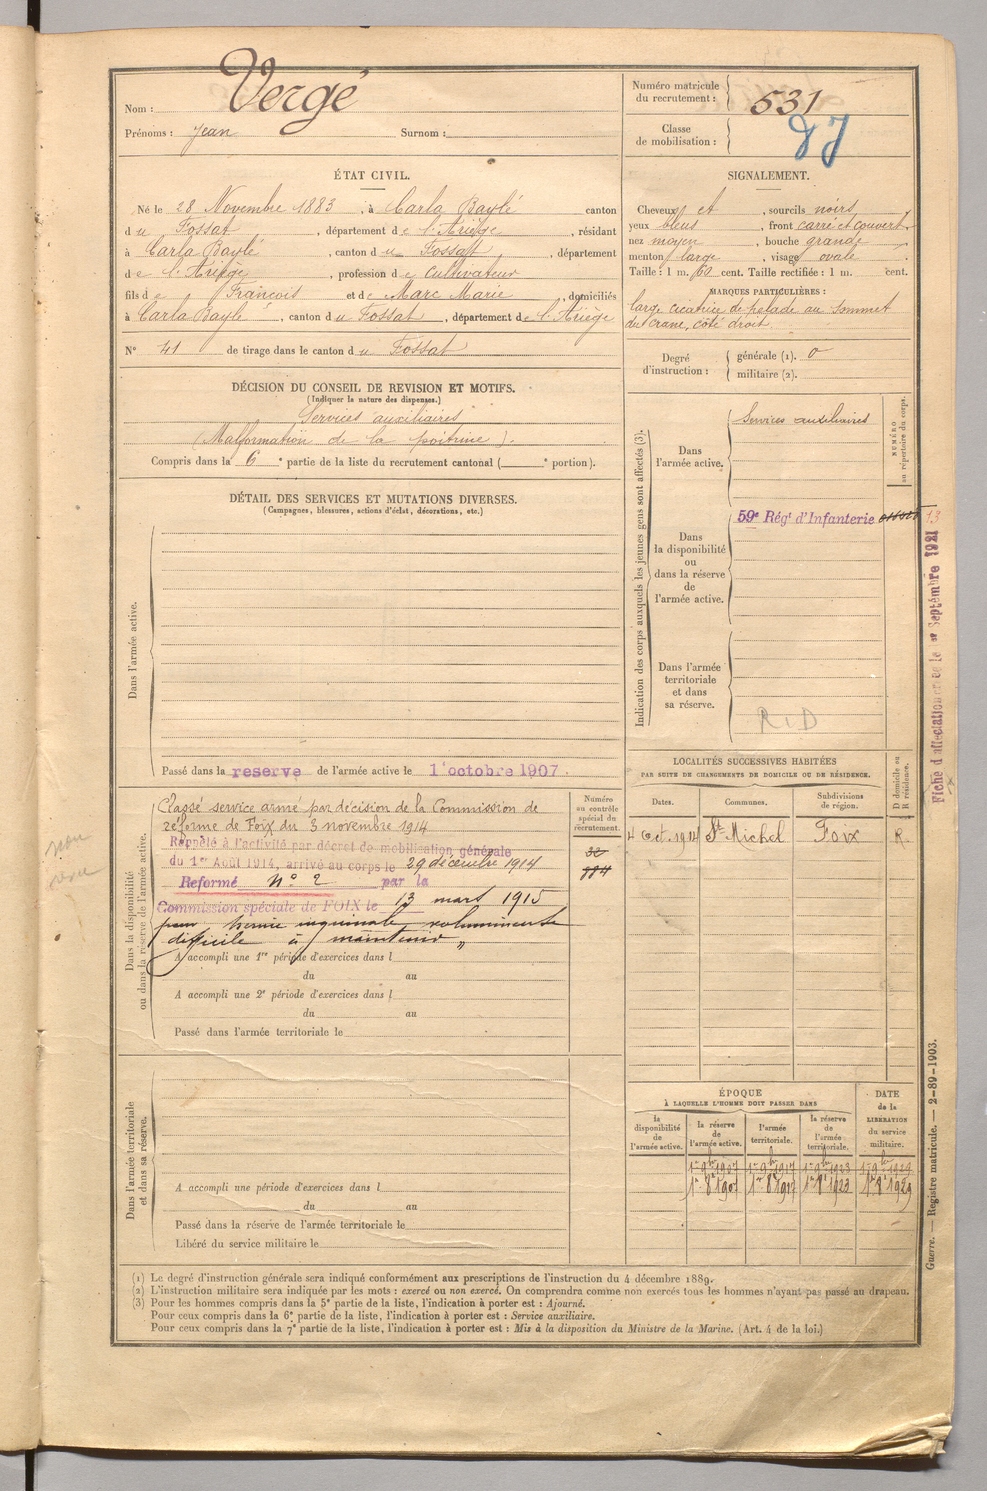 Nom : Vergé
Prénoms : Jean Surnom :
Numéro matricule du recrutement : 531
Classe de mobilisation :
ÉTAT CIVIL.
Né le 28 Novembre 1883, à Carla Baylé canton
du Fossat, département de l'Ariège, résidant
à Carla Baylé, canton du Fossat, département
de l'Ariège, profession de Cultivateur
fils de François et de Marc Marie, domiciliés
à Carla Bayle, canton du Fossat, département de l'Ariège
N° 41 de tirage dans le canton du Fossat
SIGNALEMENT.
Cheveux et, sourcils noirs
yeux bleus, front carré et couvert
nez moyen, bouche grande
menton large, visage ovale
Taille : 1 m. 60 cent. Taille rectifiée : 1 m. cent.
MARQUES PARTICULIÈRES :
large cicatrice de pelade au sommet
du crane, côté droit
Degré d'instruction : générale (1). 0
militaire (2).
DÉCISION DU CONSEIL DE REVISION ET MOTIFS.
(Indiquer la nature des dispenses.)
Services auxiliaires
(Malformation de la poitrine).
Compris dans la 6e partie de la liste du recrutement cantonal ( e portion).
DÉTAIL DES SERVICES ET MUTATIONS DIVERSES.
(Campagnes, blessures, actions d'éclat, décorations, etc.)
Dans l'armée active.
Passé dans la reserve de l'armée active le 1er octobre 1907.
Indication des corps auxquels les jeunes gens sont affectés (3).
NUMÉRO au répertoire du corps.
Dans l'armée active.
Services auxiliaires
59e Régt d'Infanterie
13
Dans la disponibilité ou dans la réserve de l'armée active.
Dans l'armée territoriale et dans sa réserve.
R.D
Fiche d'affectation le 1er Septembre 1921
LOCALITÉS SUCCESSIVES HABITÉES
PAR SUITE DE CHANGEMENTS DE DOMICILE OU DE RÉSIDENCE.
D domicile ou R résidence.
Dates. Communes. Subdivisions de région.
4 Oct. 1914 St Michel Foix R.
Dans la disponibilité ou dans la réserve de l'armée active.
Numéro au contrôle spécial du recrutement.
Classé service armé par décision de la Commission de
réforme de Foix du 3 novembre 1914
Rappelé à l'activité par décret de mobilisation générale
du 1er Août 1914, arrivé au corps le 29 décembre 1914
Reformé n° 2 par la
Commission spéciale de FOIX le 13 mars 1915
pour hernie inguinale volumineuse
difficile à maintenir
A accompli une 1re période d'exercices dans l
du au
A accompli une 2e période d'exercices dans l
du au
Passé dans l'armée territoriale le
Dans l'armée territoriale et dans sa réserve.
A accompli une période d'exercices dans l
du au
Passé dans la réserve de l'armée territoriale le
Libéré du service militaire le
ÉPOQUE
À LAQUELLE L'HOMME DOIT PASSER DANS
DATE de la LIBÉRATION du service militaire.
la disponibilité de l'armée active. la réserve de l'armée active. l'armée territoriale. la réserve de l'armée territoriale.
1er 9bre 1907 1er 9bre 1917 1er 9bre 1923 1er 9bre 1929
1er 8bre 1907 1er 8bre 1917 1er 8bre 1923 1er 8bre 1929
Guerre. — Registre matricule. — 2-89-1903.
(1) Le degré d'instruction générale sera indiqué conformément aux prescriptions de l'instruction du 4 décembre 1889.
(2) L'instruction militaire sera indiquée par les mots : exercé ou non exercé. On comprendra comme non exercés tous les hommes n'ayant pas passé au drapeau.
(3) Pour les hommes compris dans la 5e partie de la liste, l'indication à porter est : Ajourné.
Pour ceux compris dans la 6e partie de la liste, l'indication à porter est : Service auxiliaire.
Pour ceux compris dans la 7e partie de la liste, l'indication à porter est : Mis à la disposition du Ministre de la Marine. (Art. 4 de la loi.)